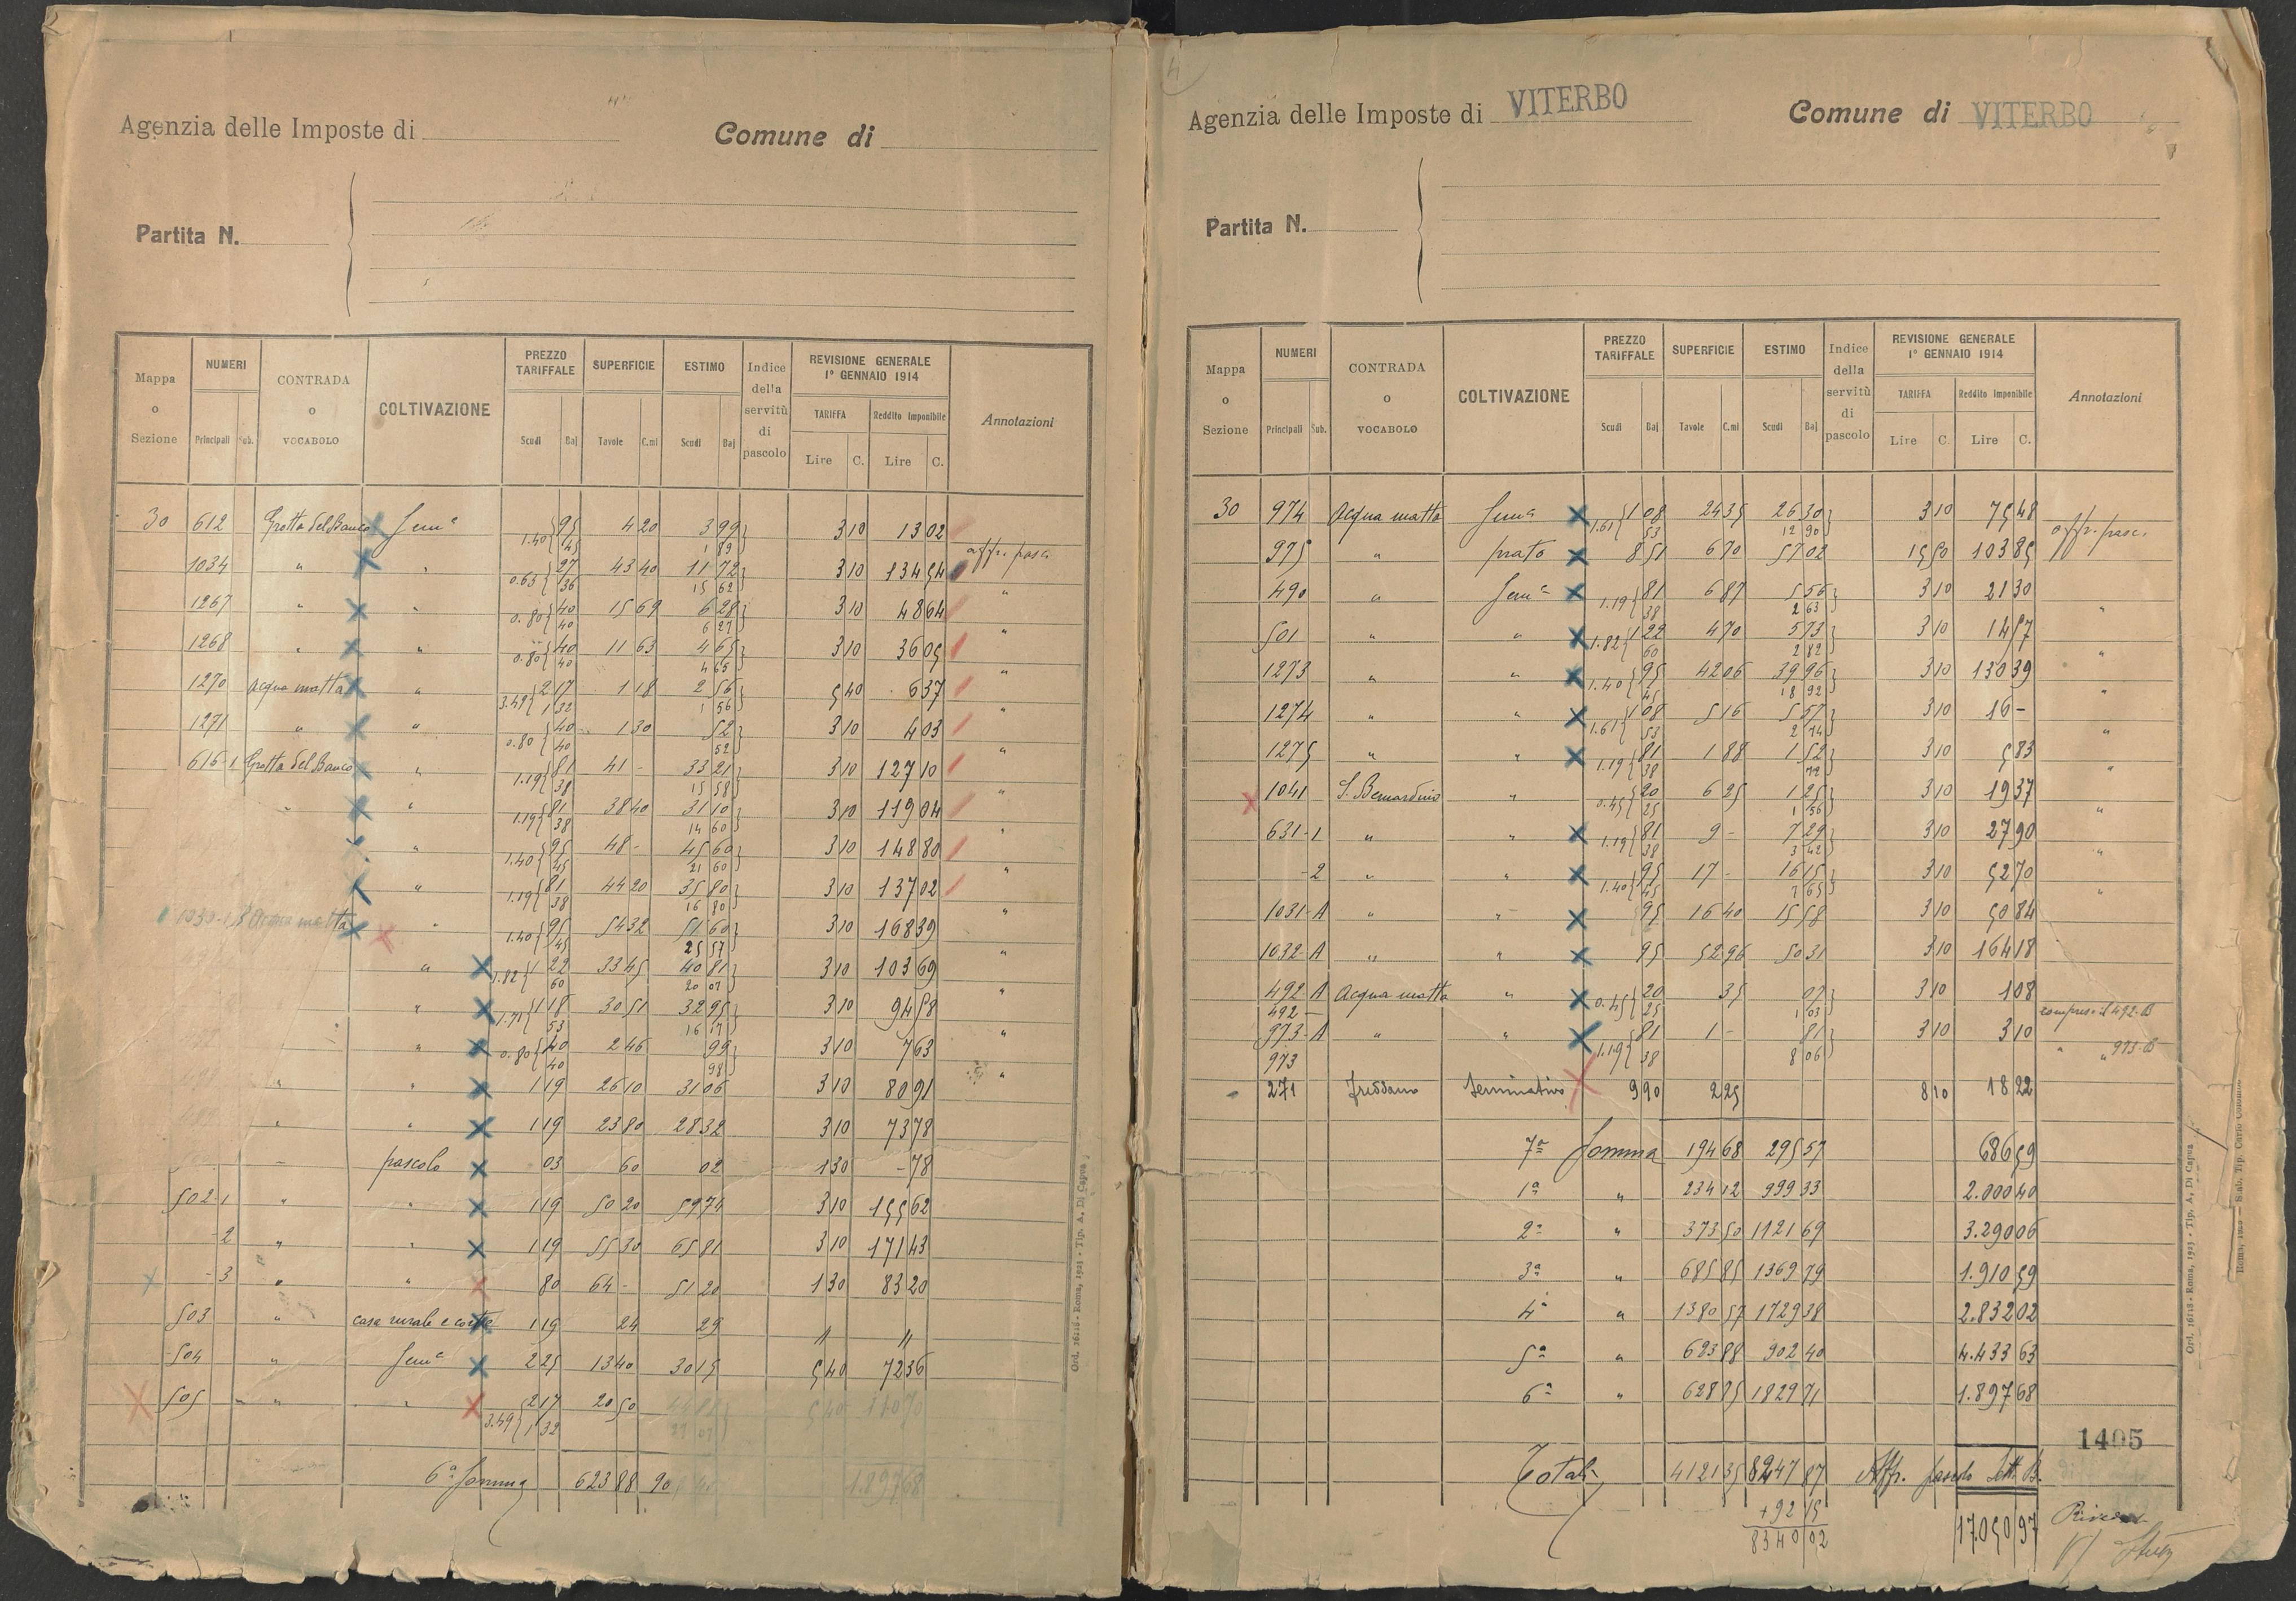 Agenzia delle Imposte di
Comune di
Partita N.
Mappa o Sezione | NUMERI Principali Sub. | CONTRADA o VOCABOLO | COLTIVAZIONE | PREZZO TARIFFALE Scudi Baj | SUPERFICIE Tavole C.mi | ESTIMO Scudi Baj | Indice della servitù di pascolo | REVISIONE GENERALE 1° GENNAIO 1914 TARIFFA Lire C. Reddito Imponibile Lire C. | Annotazioni
30 612 Grotta del Banco Sem.e 1.40 { 95 45 4 20 3 99 1 89 } 3 10 13 02
1034 " " 0.63 { 27 36 43 40 11 72 15 62 } 3 10 134 54 affr. pasc.
1267 " " 0.80 { 40 40 15 69 6 28 6 27 } 3 10 48 64 "
1268 " " 0.80 { 40 40 11 63 4 65 4 65 } 3 10 36 05 "
1270 Acqua matta " 3.49 { 2 17 1 32 1 18 2 56 1 56 } 5 40 6 37 "
1271 " " 0.80 { 40 40 1 30 52 52 } 3 10 4 03 "
616-1 Grotta del Banco " 1.19 { 81 38 41 - 33 21 15 58 } 3 10 127 10 "
" " 1.19 { 81 38 38 40 31 10 14 60 } 3 10 119 04 "
" 1.40 { 95 45 48 - 45 60 21 60 } 3 10 148 80 "
" 1.19 { 81 38 44 20 35 80 16 80 } 3 10 137 02 "
Acqua matta " 1.40 { 95 45 54 32 51 60 25 57 } 3 10 168 39 "
" 1.82 { 1 22 60 33 45 40 81 20 07 } 3 10 103 69 "
" 1.71 { 1 18 53 30 51 32 95 16 17 } 3 10 94 58 "
" 0.80 { 40 40 2 46 99 98 } 3 10 7 63 "
" " 1 19 26 10 31 06 3 10 80 91 "
" " 1 19 23 80 28 32 3 10 73 78
" pascolo 03 60 02 1 30 - 78
502-1 " " 1 19 50 20 59 74 3 10 155 62
-2 " " 1 19 55 30 65 81 3 10 171 43
-3 " " 80 64 - 51 20 1 30 83 20
503 " casa rurale e corte 1 19 24 29 " "
504 " Sem.e 2 25 13 40 30 15 5 40 72 36
505 " " 3.49 { 2 17 1 32 20 50 5 40
6a Somma 623 88 90 1.897 68
Ord. 16118 - Roma, 1923 - Tip. A. Di Capua
4
Agenzia delle Imposte di VITERBO
Comune di VITERBO
Partita N.
Mappa o Sezione | NUMERI Principali Sub. | CONTRADA o VOCABOLO | COLTIVAZIONE | PREZZO TARIFFALE Scudi Baj | SUPERFICIE Tavole C.mi | ESTIMO Scudi Baj | Indice della servitù di pascolo | REVISIONE GENERALE 1° GENNAIO 1914 TARIFFA Lire C. Reddito Imponibile Lire C. | Annotazioni
30 974 Acqua matta Sem.e 1.61 { 1 08 53 24 35 26 30 12 90 } 3 10 75 48 affr. pasc.
975 " prato 8 51 6 70 57 02 15 50 103 85
490 " Sem.e 1.19 { 81 38 6 87 5 56 2 63 } 3 10 21 30 "
501 " " 1.82 { 1 22 60 4 70 5 73 2 82 } 3 10 14 57 "
1273 " " 1.40 { 95 45 42 06 39 96 18 92 } 3 10 130 39 "
1274 " " 1.61 { 1 08 53 5 16 5 57 2 74 } 3 10 16 - "
1275 " " 1.19 { 81 38 1 88 1 52 72 } 3 10 5 83 "
1041 S. Bernardino " 0.45 { 20 25 6 25 1 25 1 56 } 3 10 19 37 "
631-1 " " 1.19 { 81 38 9 - 7 29 3 42 } 3 10 27 90 "
-2 " " 1.40 { 95 45 17 - 16 15 7 65 } 3 10 52 70 "
1031-A " " 95 16 40 15 58 3 10 50 84
1032-A " " 95 52 96 50 31 3 10 164 18
492-A Acqua matta " 0.45 { 20 25 35 07 1 03 } 3 10 1 08 compreso il 492-B
492 -
973-A " " 1.19 { 81 38 1 - 81 8 06 } 3 10 3 10 " " 973-B
973
271 Freddano Seminativo 9 90 2 25 8 10 18 22
7a Somma 194 68 295 57 686 59
1a " 234 12 999 33 2.000 40
2a " 373 50 1121 69 3.290 06
3a " 685 85 1369 79 1.910 59
4a " 1380 57 1729 38 2.832 02
5a " 623 88 902 40 4.433 63
6a " 628 75 1829 71 1.897 68
1405
Totale 4121 35 8247 87 Affr. pascolo Lett. B.
+92 15
8340 02
17.050 97
Ord. 16118 - Roma, 1923 - Tip. A. Di Capua